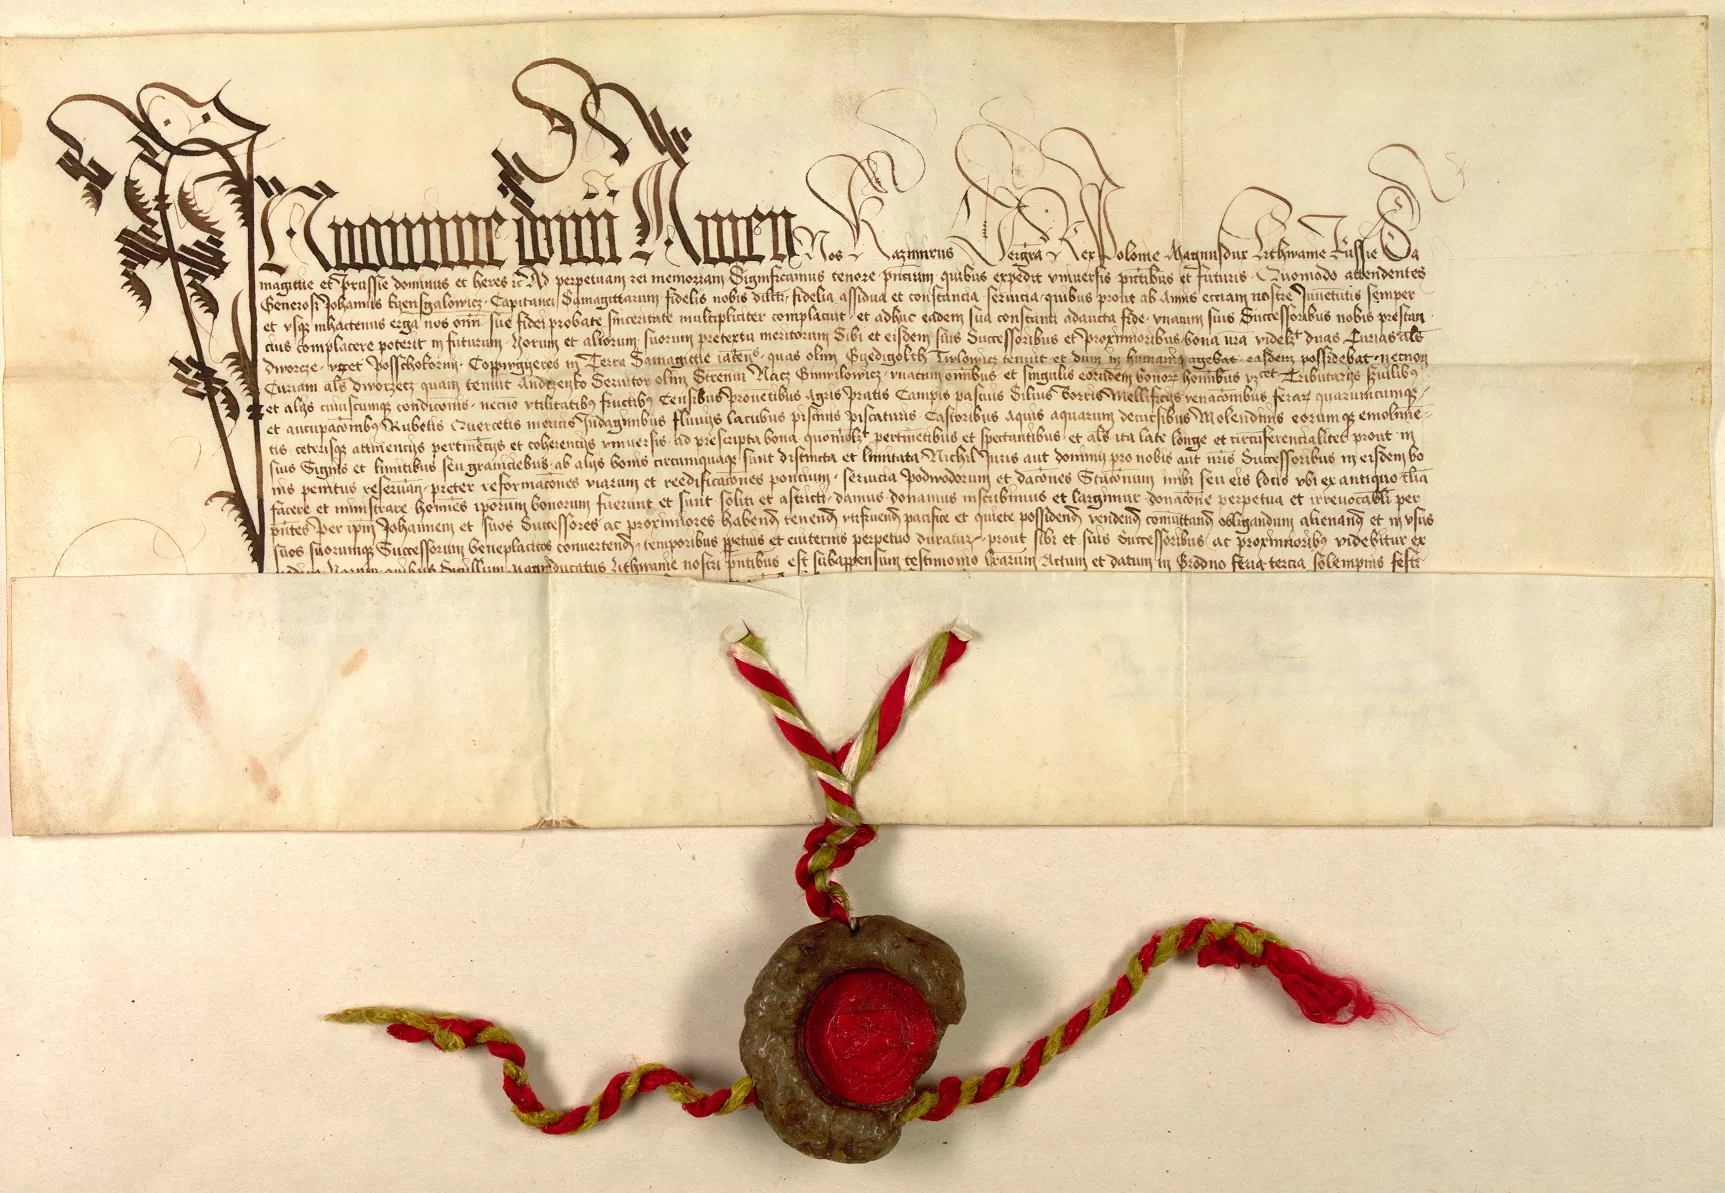 In nomine domini Amen Nos Kazimirus Dei gra Rex Polonie Magnusdux Lithwanie Russie Sa
magittie et Prussie dominus et heres rc Ad perpetuam rei memoriam Significamus tenore pntium quibus expedit vniversis pntibus et futuris Quomodo attendentes
Generosi Johannis Capitanei Samagittarum fidelis nobis dilcti fidelia assidua et constancia servicia quibus prout ab Annis eciam nostre Juventutis semper
et vsq inhactenus erga nos omi sue fidei probate sinceritate multipliciter complacuit et adhuc eadem sua constanti adaucta fide vnacum suis Successoribus nobis prestan
cius complacere poterit in futurum Horum et aliorum suorum pretextu meritorum Sibi et eisdem suis Successoribus et Proximioribus bona nra videlzt duas Curias als
dworcze vzcet Posschokorni in Terra Samagittie iacens quas olim tenuit et dum in humanis agebat easdem possidebat necnon
Curiam als dworzecz quam tenuit Servitor olim Strenui vnacum omibus et singulis eorundem bonor hoibus vzcet Tributarijs
et alijs cuiuscumque condicionis necno vtilitatibus fructibus Censibus Proventibus Agris Pratis Campis pascuis Silvis Borris Mellificijs venacoibus ferar quarumcumque
et aucupacoibus Rubetis Quercetis mericis Indaginibus fluvijs lacubus piscinis piscaturis Castoribus Aquis aquarum decursibus Molendinis eorumque emolime
tis ceterisque attinencijs pertinecijs et coherencijs vniversis ad prescripta bona quomolzt pertinetibus et spectantibus et als ita late longe et circumferencialiter prout in
suis Signis et limitibus seu graniciebus ab alijs bonis circumquaque sunt distincta et limitata Nichil Juris aut dominij pro nobis aut nris Successoribus in eisdem bo
nis penitus reservan preter reformacones viarum et reedificacones poncium servicia Podwodorum et dacones Stacionum inibi seu eis locis vbi ex antiquo
facere et ministrare homies iporum bonorum fuerunt et sunt soliti et astricti damus donamus inscribimus et largimur donacione perpetua et irrevocabli per
pntes Per ipm Johannem et suos Successores ac proximiores habend tenend vtifruend pacifice et quiete possidend vendend comittand obligandum alienand et in vsus
suos suorumque Successorum beneplacitos convertend temporibus ppetuis et eviternis perpetuo duratur prout sibi et suis Successoribus ac proximioribus videbitur ex
quibus Sigillum Magniducatus Lithwanie nostri pntibus est subappensum testimonio lrarum Actum et datum in Grodno feria tercia solempnis festi